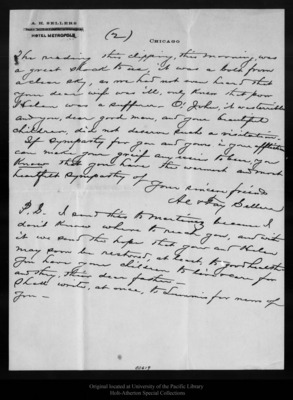 A. H. SELLERS
HOTEL METROPOLE
(2)
CHICAGO
The reading this clipping, this morning, was
a great shock to me, it was a bolt from
a clear sky, as we had not even heard that
your dear wife was ill. only knew that poor
Helen was a sufferer. O! John, it was terrible
and you, dear good man, and your beautiful
children, did not deserve such a visitation.
If sympathy for you and yours in your affliction
can make your grief any easier to bear, you
know that you have the warmest and most
heartfelt sympathy of your sincere friend
Fay Sellers
P.S. I send this to Martinez because I
don't know where to reach you, and with
it we send the hope that you and Helen
may soon be restored, at least, to good health
you have your children to live for
and they, their dear father.
Shall write, at once, to for news of
you -
Original located at University of the Pacific Library
Holt-Atherton Special Collections